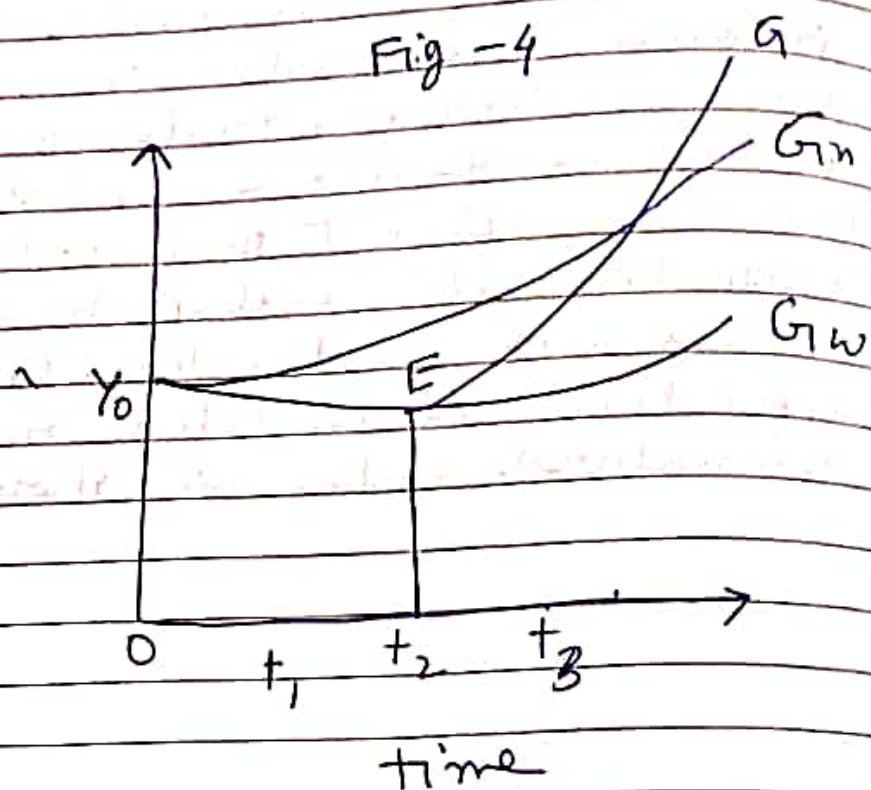 Fig - 4
G
Gn
Gw
Y0
E
0
t1
t2
t3
time